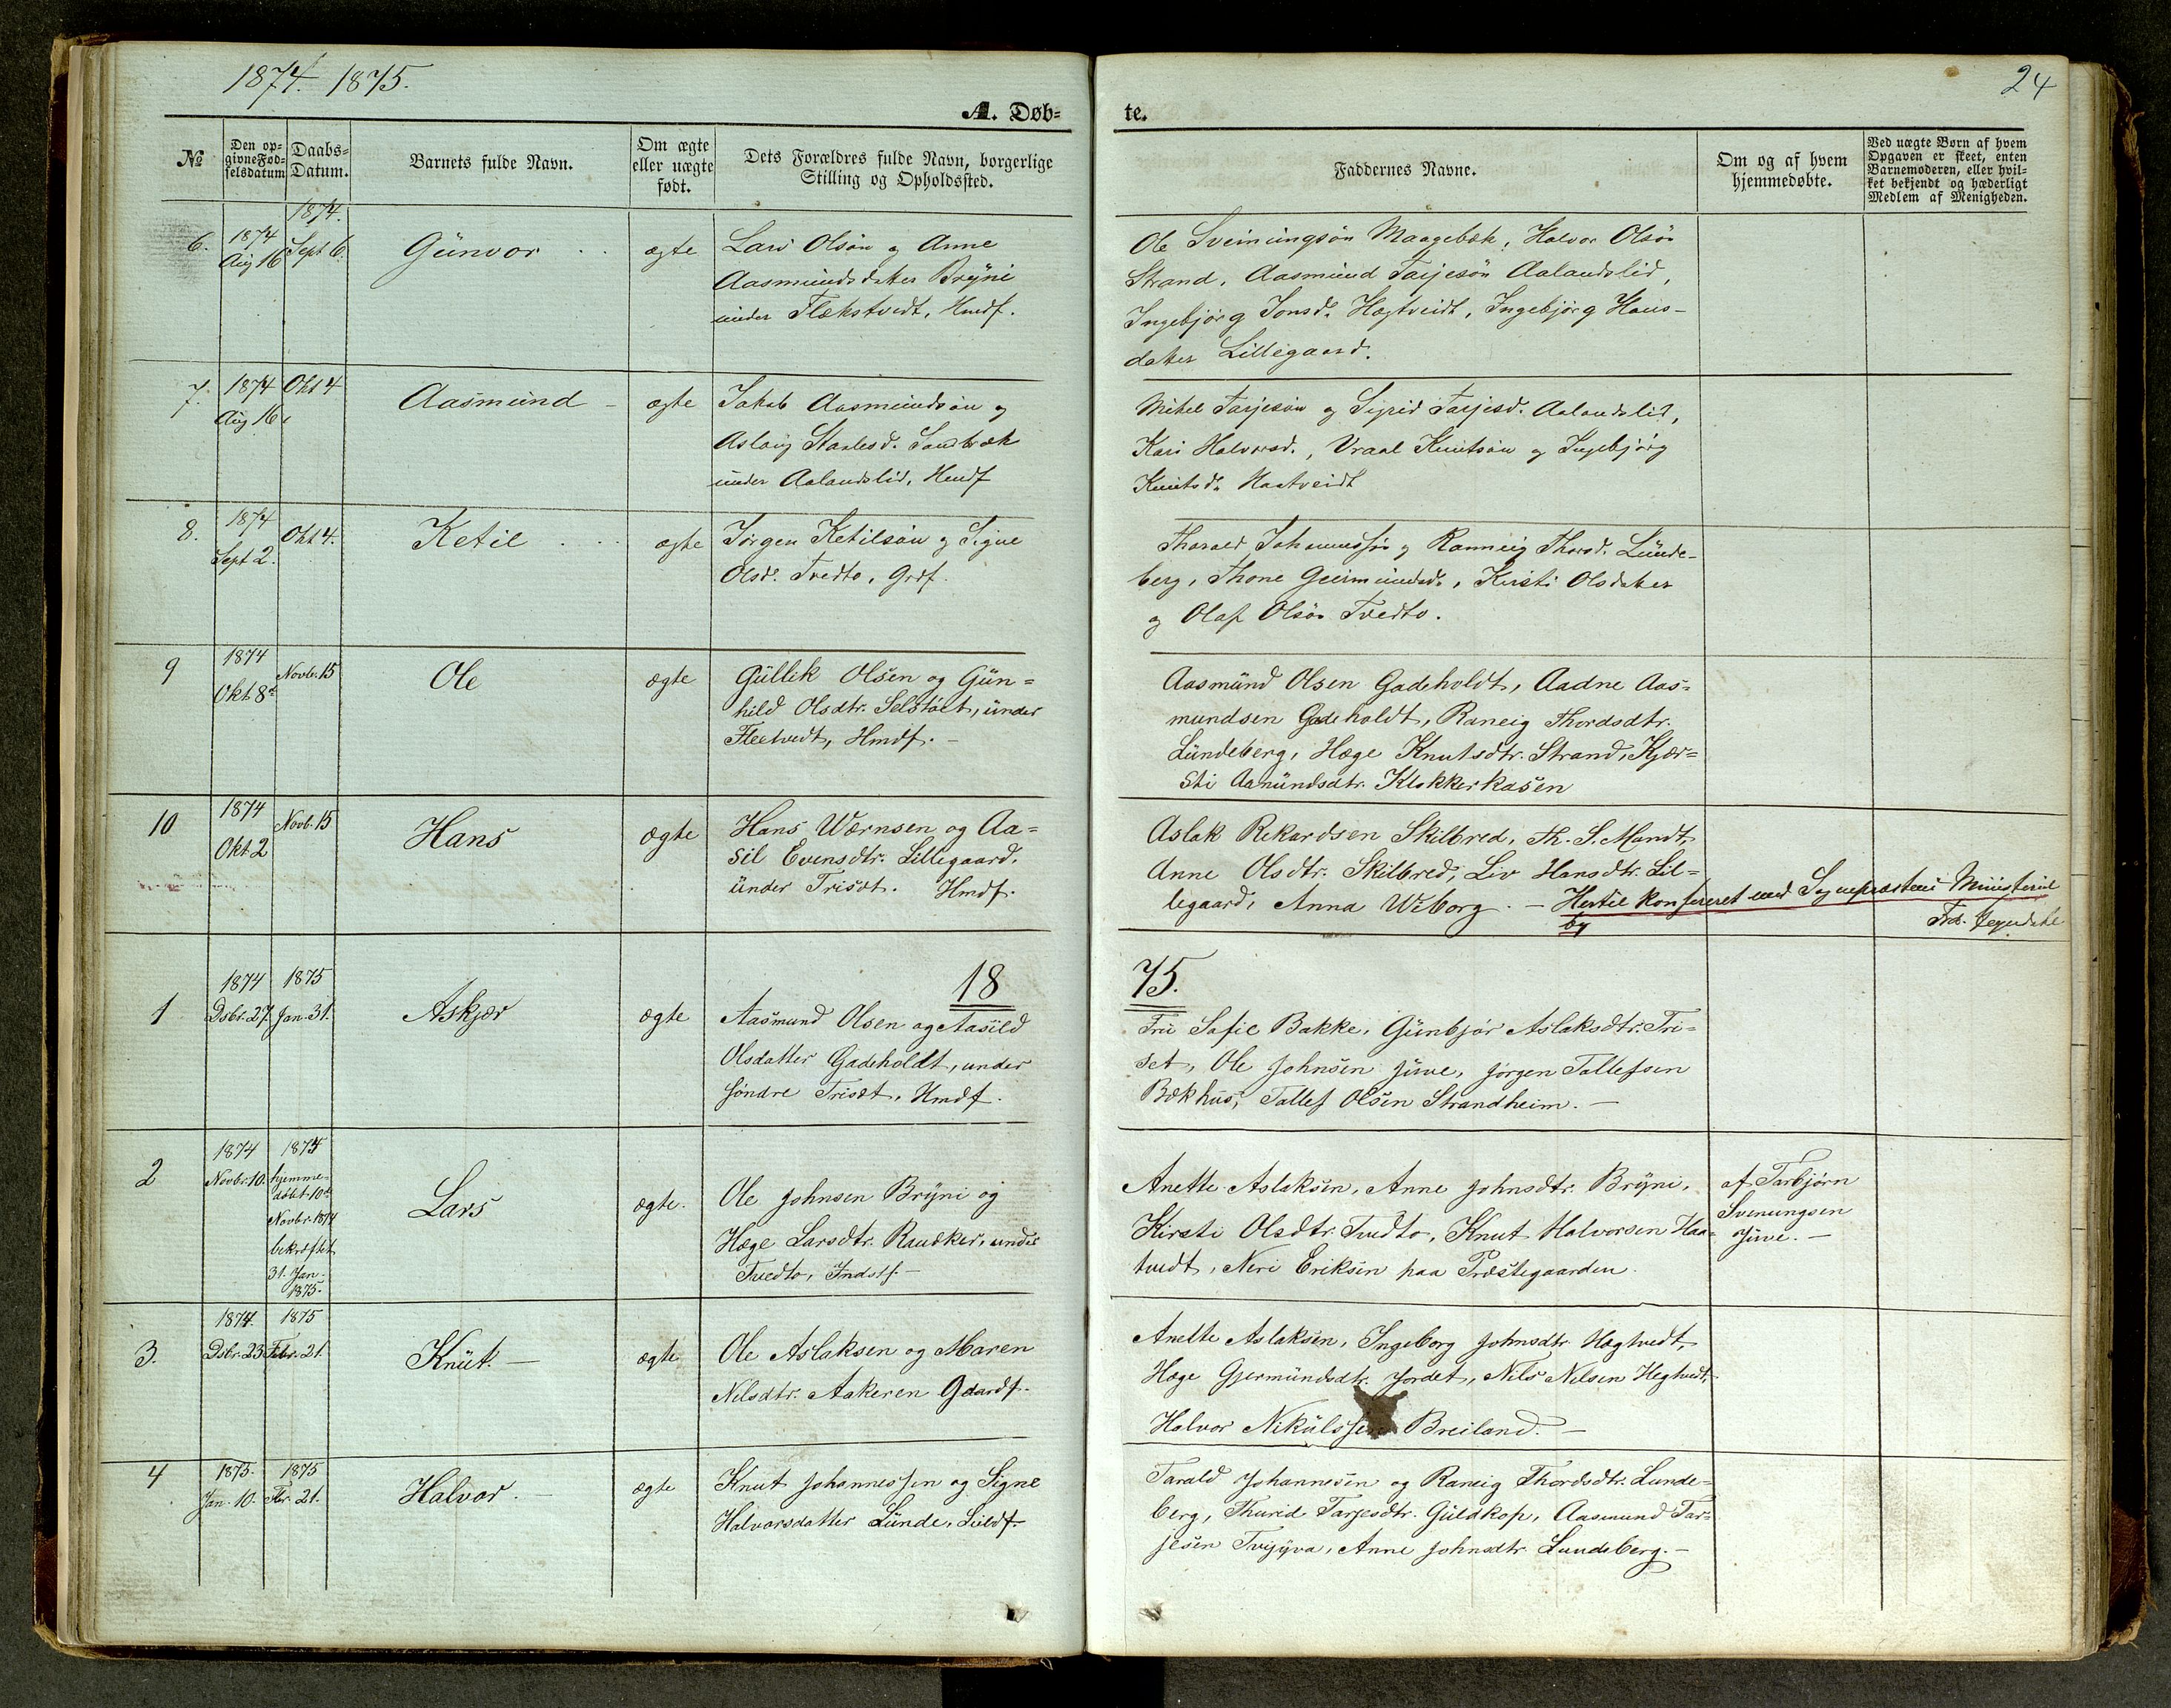 1874. 1875.
24
A. Døb-
te.
№
Den op-
givne Fød-
selsdatum
Daabs-
Datum.
Barnets fulde Navn.
Om ægte
eller uægte
født.
Dets Forældres fulde Navn, borgerlige
Stilling og Opholdssted.
Faddernes Navne.
Om og af hvem
hjemmedøbte.
Ved uægte Børn af hvem
Opgaven er skeet, enten
Barnemoderen, eller hvil-
ket bekjendt og hæderligt
Medlem af Menigheden.
6.
1874
Aug 16
1874.
Sept 6.
Gunvor
ægte
Lars Olsøn og Anne
Aasmundsdatter Bryni
under Flekstvedt, Hmdf.
Ole Sveinungsøn Maagebæk, Halvor Olsøn
Strand, Aasmund Tarjesøn Aalandslid,
Ingebjørg Jonsd. Hægtveidt, Ingebjørg Hans-
datter Lillegaard.
7.
1874
Aug 16
Okt 4
Aasmund -
ægte
Jakob Aasmundsøn og
Aslaug Staalesd. Sandbæk
under Aalandslid, Hmdf
Mikel Tarjesøn og Sigrid Tarjesd. Aalandslid,
Kari Halvorsd., Vraal Knutsøn og Ingebjørg
Knutsd. Haatveidt
8.
1874
Sept 2.
Okt 4.
Ketil
ægte
Jørgen Ketilsøn og Signe
Olsd. Tvedto, Grdf.
Tharald Johannessøn og Ranneig Thorsd. Lunde-
berg, Thone Geirmundsd., Kirsti Olsdatter
og Olaf Olsøn Tvedto.
9
1874
Okt 8de
Novbr. 15
Ole
ægte
Gullik Olsen og Gun=
hild Olsdtr. Selstøet, under
Flectvedt, Hmdf. -
Aasmund Olsen Gadeholdt, Aadne Aas=
mundsen Gadeholdt, Raneig Thordsdtr.
Lundeberg, Hæge Knutsdtr. Strand, Kjær=
sti Aamundsdtr. Klokkerkasen
10
1874
Okt 2
Novb. 15
Hans
ægte
Hans Wærnsen og Aa=
sil Evensdtr. Lillegaard,
under Trisæt. Hmdf.
Aslak Rikardsen Skilbred, Th. S. Mandt,
Anne Olsdtr. Skilbred, Liv Hansdtr. Lil=
legaard, Anna Wiborg. - Hertil konfereret med Sognepræstens Ministerial
by
18
75.
1
1874
Dsbr. 27.
1875
Jan. 31.
Askjær
ægte
Aasmund Olsen og Aasild
Olsdatter Gadeholdt, under
søndre Trisæt, Hmdf.
Fru Sofie Bakke, Gunbjør Aslaksdtr. Tri=
set, Ole Johnsen Juve, Jørgen Tallefsen
Bækhus, Tallef Olsen Strandheim. -
2
1874
Novbr. 10.
1875
hjemme-
døbt 10de
Novbr. 1874
bekræftet
31. Jan.
1875.
Lars
ægte.
Ole Johnsen Bryni og
Hæge Larsdtr. Raudker, under
Tvedto, Indstf. -
Anette Aslaksen, Anne Johnsdtr. Bryni,
Kirsti Olsdtr. Tvedto, Knut Halvorsen Haa=
tvedt, Neri Eriksen paa Præstegaarden.
af Tarbjørn
Svenungsen
Juve. -
3.
1874.
Dsbr. 23
1875
Febr. 21.
Knut. -
ægte
Ole Aslaksen og Maren
Nilsdtr. Aakeren Gaardf.
Anette Aslaksen, Ingeborg Johnsdtr. Hægtvedt,
Hæge Gjermundsdtr. Jordet, Nils Nilsen Hegtvedt,
Halvor Nikulssen Breiland. -
4
1875.
Jan. 10.
1875
Fbr. 21.
Halvor. -
ægte
Knut Johannessen og Signe
Halvorsdatter Lunde, Sildf.
Tarald Johannesen og Raneig Thordsdtr. Lunde=
berg, Thurid Tarjesdtr. Guldkop, Aasmund Tar=
jesen Tvigyva, Anne Johnsdtr. Lundeberg. -